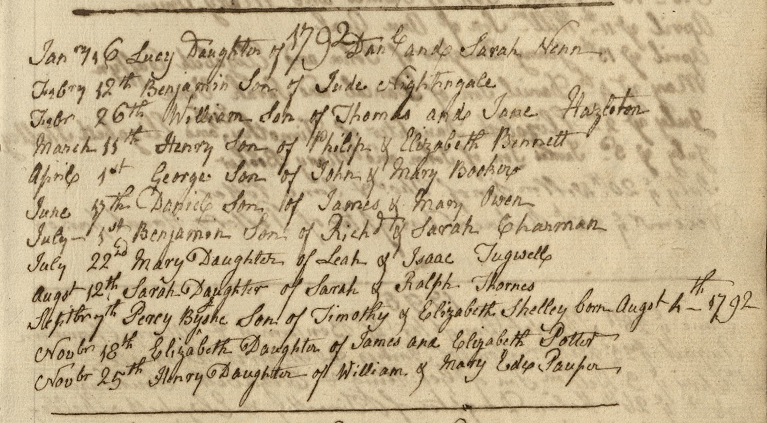 1792
Janry 6 Lucy Daughter of Danl and Sarah Venn
Febry 12th Benjamin Son of Jude Nightingale
Febr 26th William Son of Thomas and Jane Hazleton
March 11th Henry Son of Philip & Elizabeth Bennett
April 1st George Son of John & Mary Booker
June 17th Daniel Son of James & Mary Owen
July 1st Benjamin Son of Richd & Sarah Charman
July 22d Mary Daughter of Leah & Isaac Tugwell
Augst 12th Sarah Daughter of Sarah & Ralph Thornes
Septbr 7th Percy Byshe Son of Timothy & Elizabeth Shelley born Augst 4th 1792
Novbr 18th Elizabeth Daughter of James and Elizabeth Potter
Novbr 25th Henry Daughter of William & Mary Ede Pauper